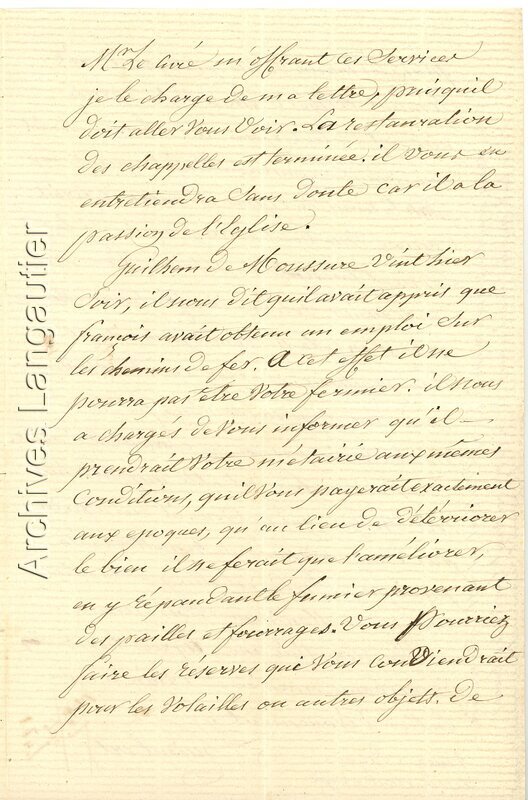 Mr Le curé m'offrant ces Services
je le charge de ma lettre, puisquil
doit aller vous voir. La restauration
des chappelles est terminée, il vous en
entretiendra Sans doute car il a la
passion de l'Eglise.
Guilhem de Moussure vint hier
Soir, il nous dit quil avait appris que
françois avait obtenu un emploi Sur
les chemins de fer. A cet effet il ne
pourra pas être votre fermier. il nous
a chargés de vous informer qu'il
prendrait votre métairie aux mêmes
Conditions, quil vous payerait exactement
aux epoques, qu'au lieu de détériorer
le bien il ne ferait que l'améliorer,
en y répandant le fumier provenant
des pailles et fourrages. Vous Pourriez
faire les réserves qui vous conViendrait
pour les volailles ou autres objets. De
Archives Langautier